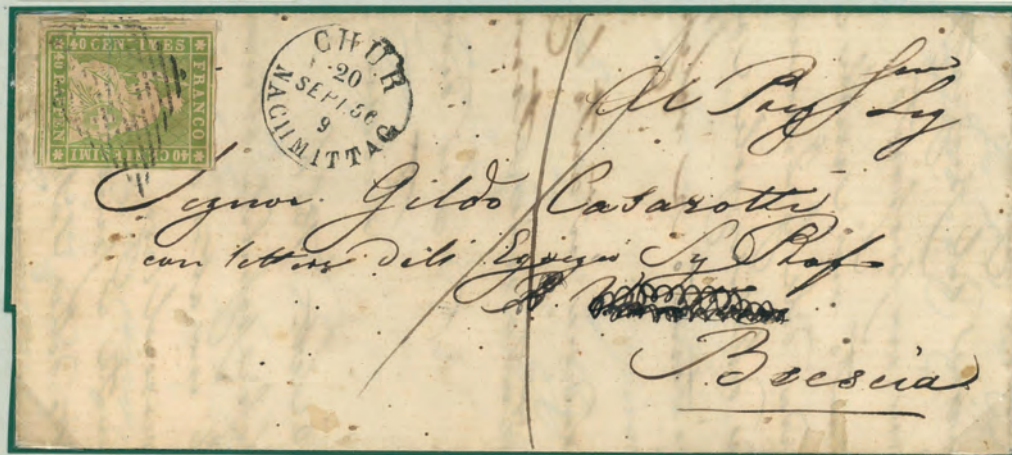 40 CENTIMES
FRANCO
40 CENTESIMI
40 RAPPEN
CHUR
20
SEPT. 56
9
NACHMITTAG
Al
Signor Gildo Casarotti
con lettere Sig Prof
Brescia